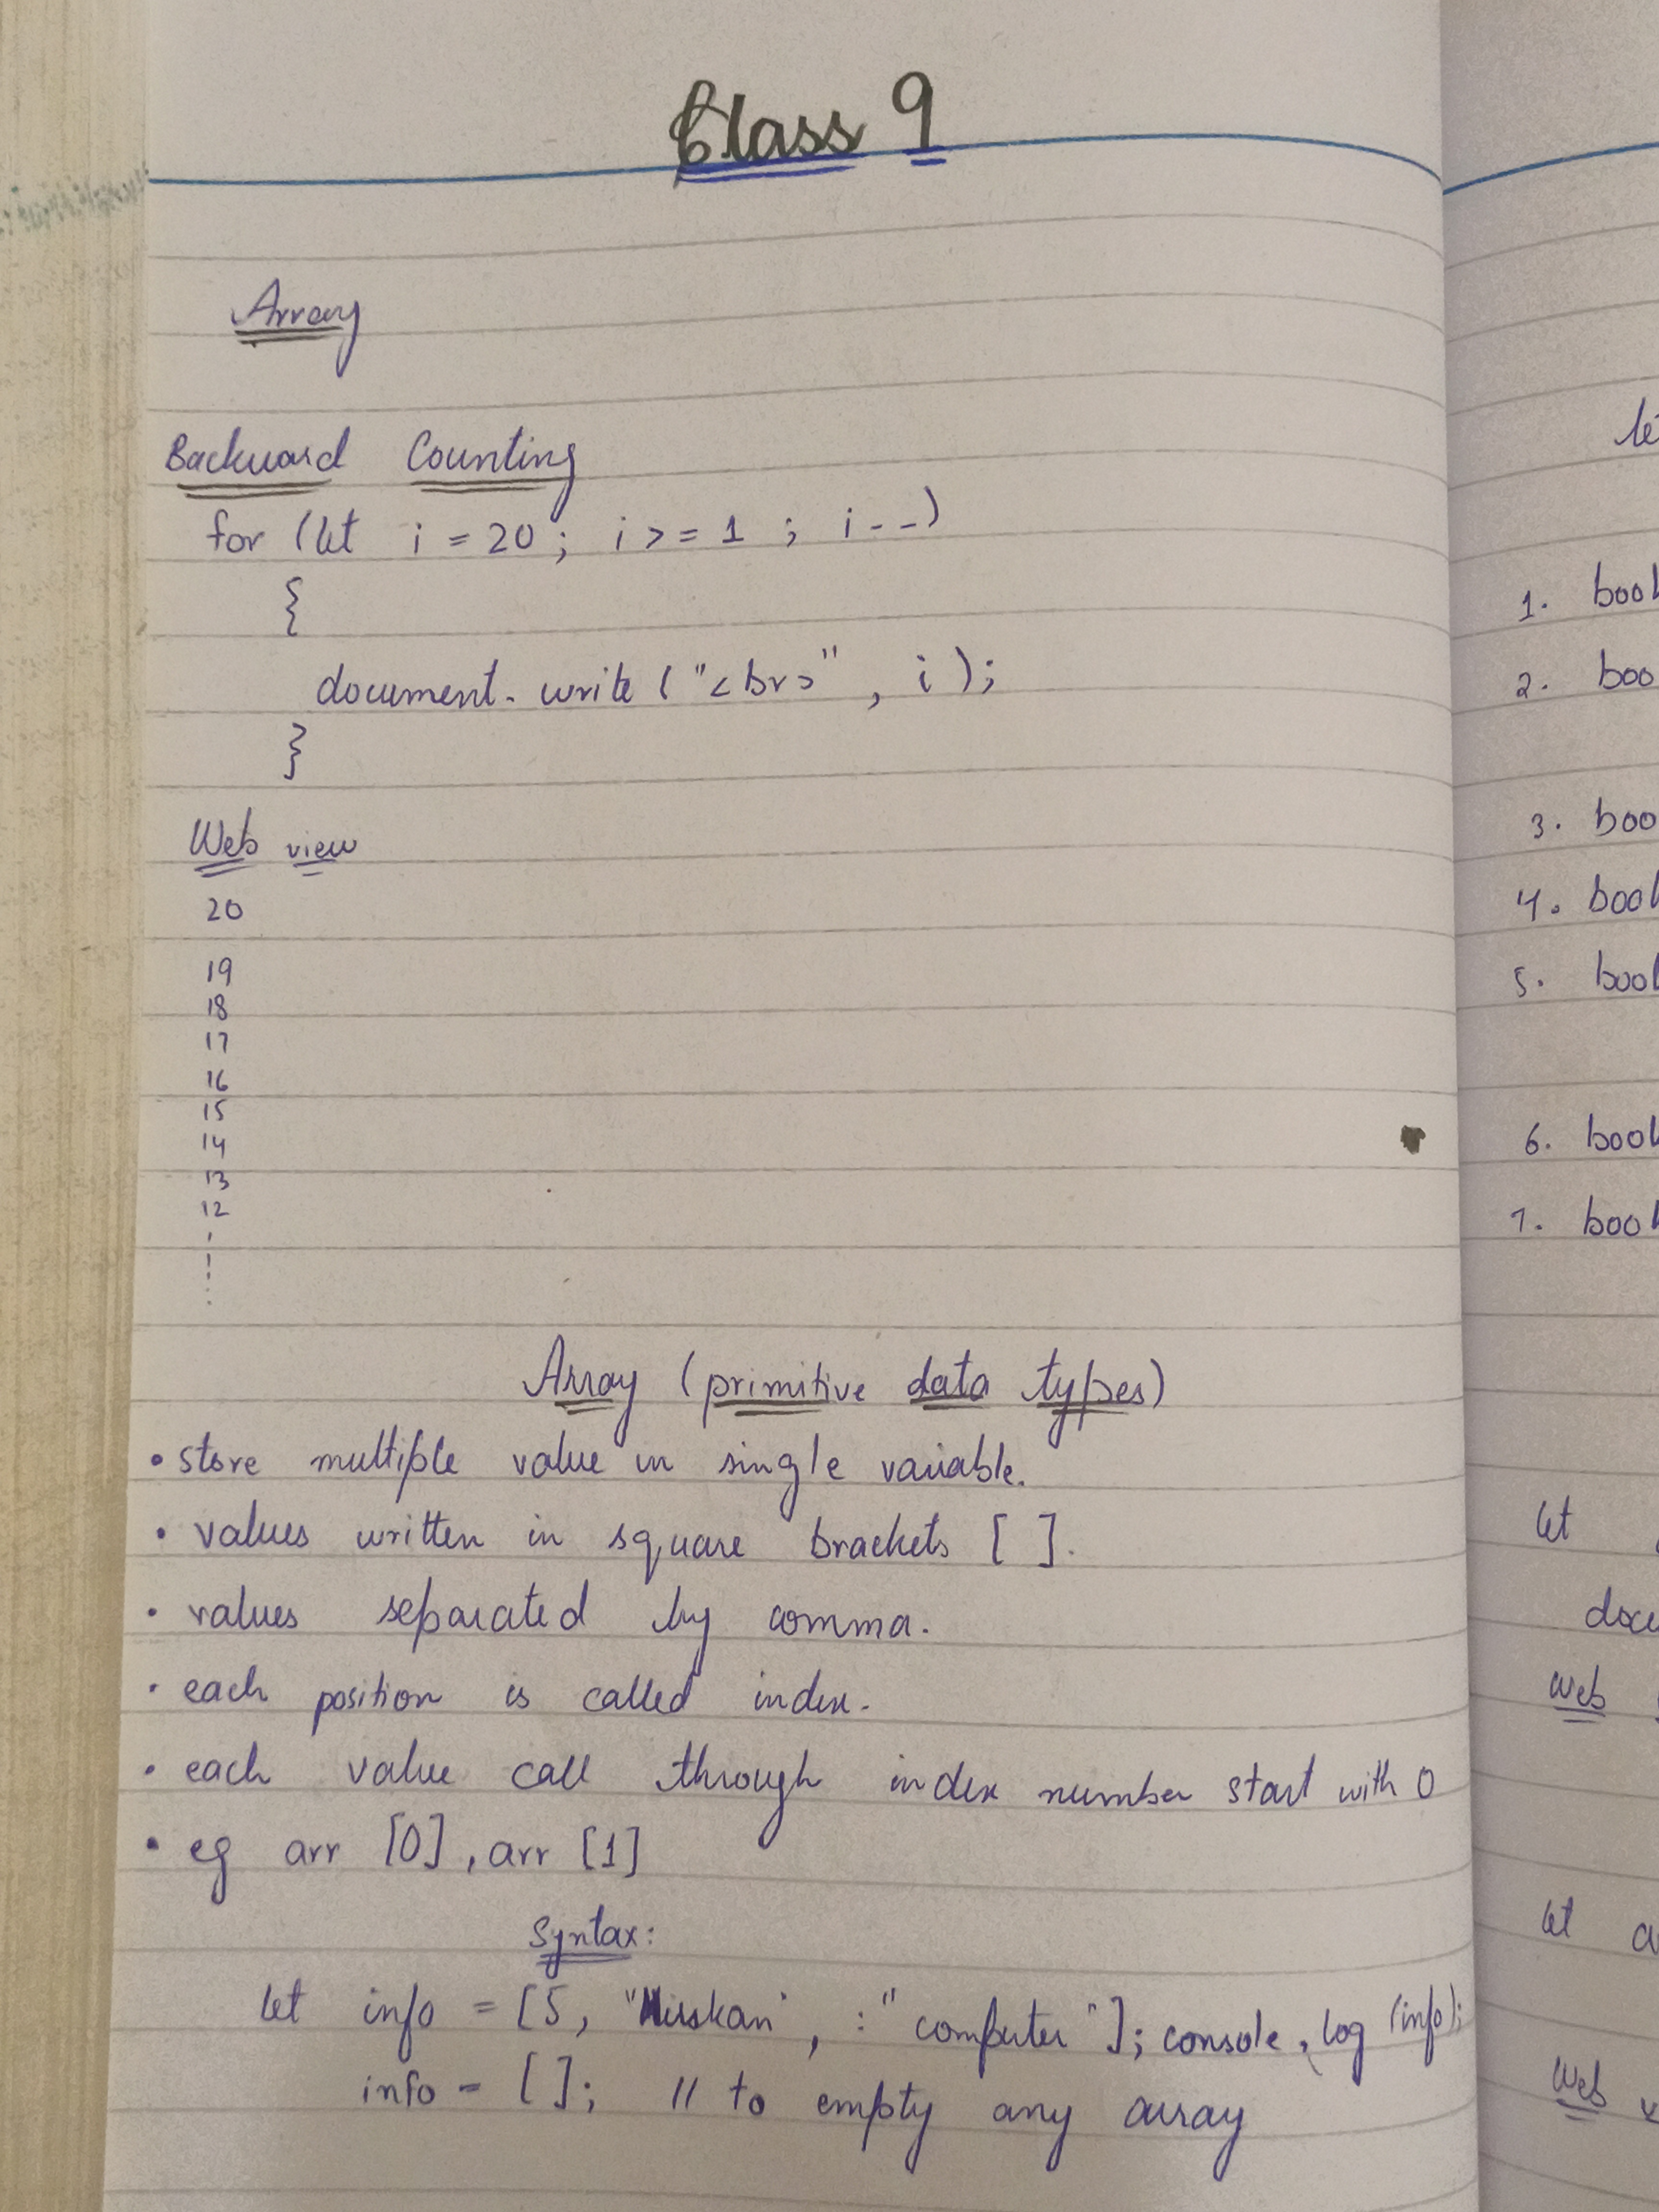 Class 9
Array
Backward Counting
for (let i = 20 ; i >= 1 ; i--)
{
document.write ("<br>" , i );
}
Web view
20
19
18
17
16
15
14
13
12
Array (primitive data types)
• store multiple value in single variable.
• values written in square brackets [ ].
• values separated by comma.
• each position is called index.
• each value call through index number start with 0
• eg arr [0], arr [1]
Syntax:
let info = [5, "Muskan", "computer"]; console.log (info);
info = [ ]; // to empty any array
let
1.
2.
3.
4.
5.
6.
7.
let
web
let
web